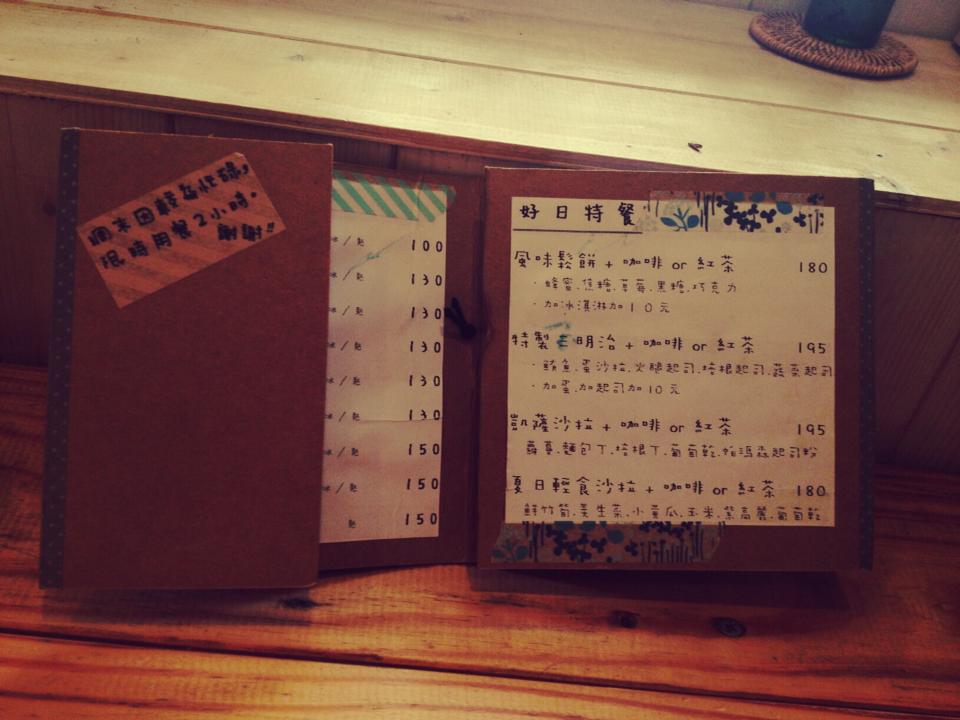 週末因較為忙碌,
限時用餐2小時。
謝謝!!
冰/熱 100
冰/熱 130
冰/熱 130
冰/熱 130
冰/熱 130
冰/熱 130
冰/熱 150
冰/熱 150
熱 150
好日特餐
風味鬆餅 + 咖啡 or 紅茶 180
·蜂蜜.焦糖.草莓.黑糖.巧克力
·加冰淇淋加10元
特製三明治 + 咖啡 or 紅茶 195
·鮪魚.蛋沙拉.火腿起司.培根起司.蔬菜起司
·加蛋.加起司加10元
凱薩沙拉 + 咖啡 or 紅茶 195
蘿蔓.麵包丁.培根丁.葡萄乾.帕瑪森起司粉
夏日輕食沙拉 + 咖啡 or 紅茶 180
鮮竹筍.美生菜.小黃瓜.玉米.紫高麗.葡萄乾